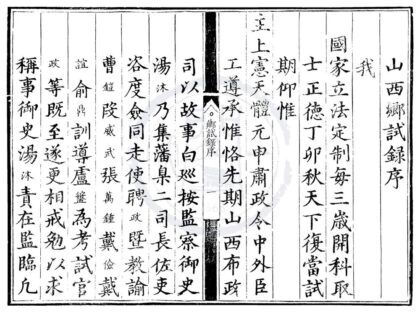 山西鄉試錄序
我
國家立法定制每三歲開科取
士正德丁卯秋天下復當試
期仰惟
主上憲天體元申肅政令中外臣
工遵承惟恪先期山西布政
鄉試錄序
司以故事白巡按監察御史
湯沐乃集藩臬二司長佐吏
咨度僉同走使聘政暨教諭
曹鎧段威武張萬鍾戴儉戴
誼俞鼎訓導盧盤為考試官
政等既至遂更相戒勉以求
稱事御史湯沐責在監臨凡